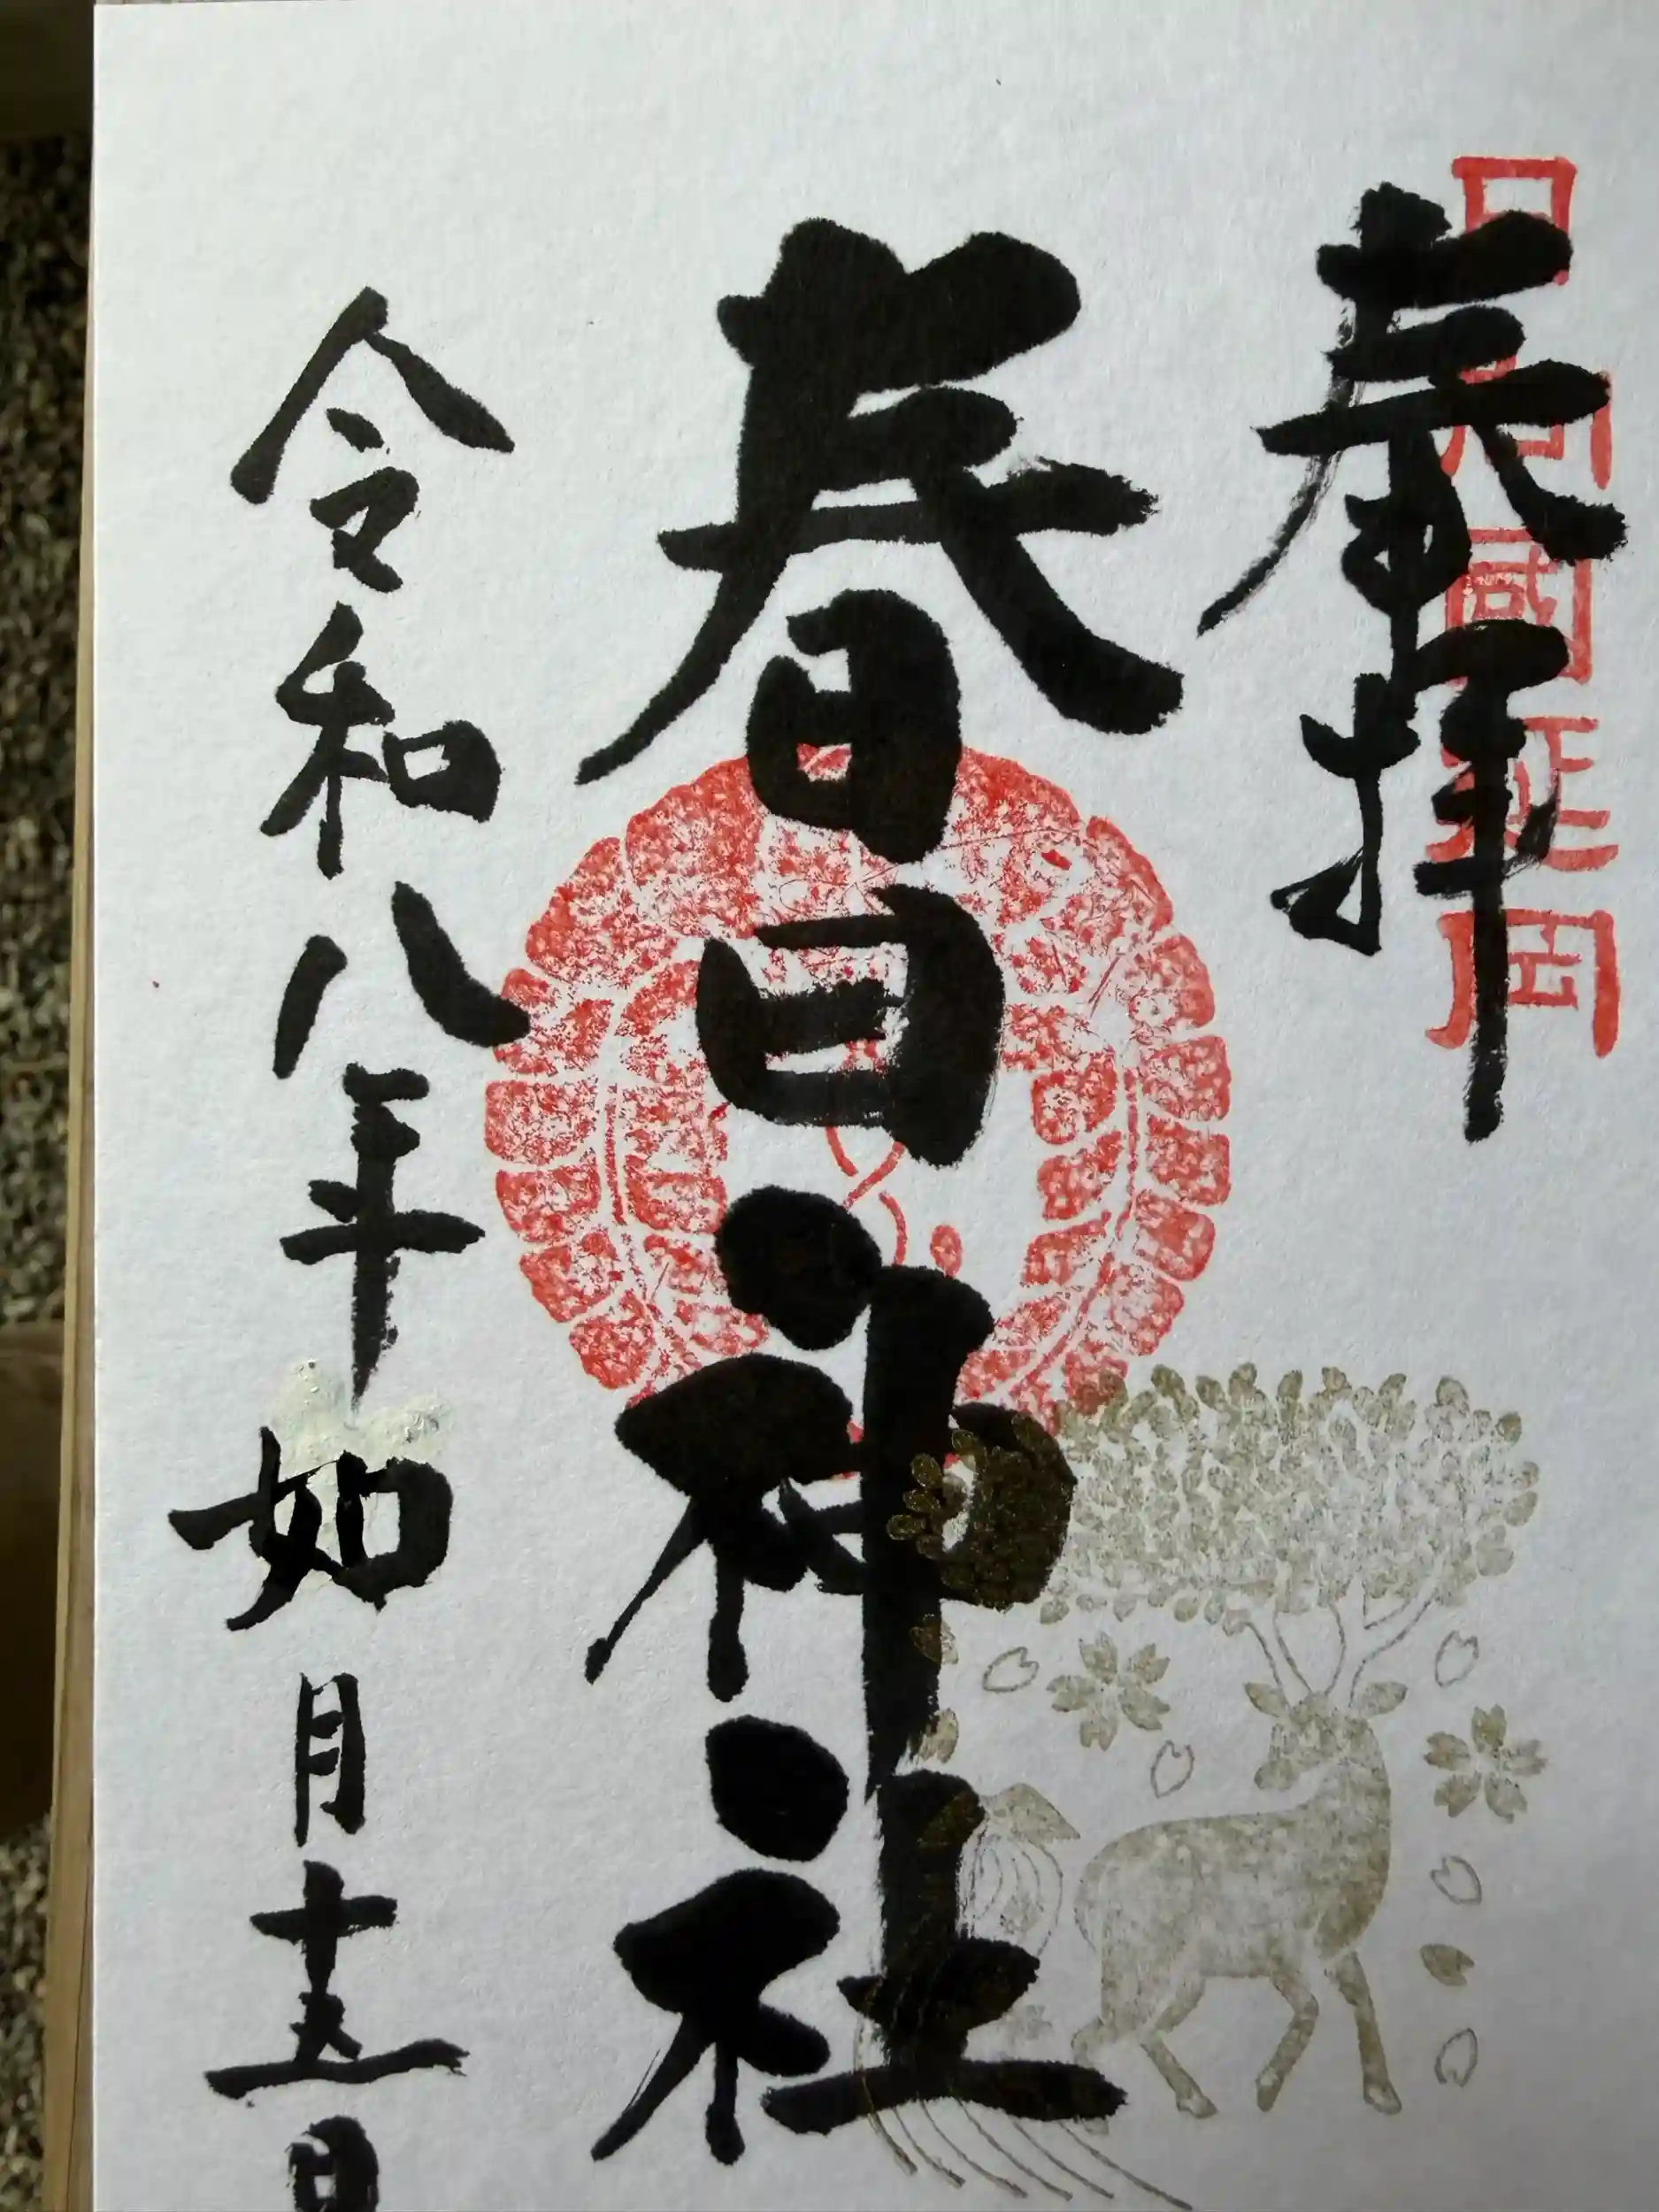 日向國延岡
奉拝
春日神社
令和八年如月十五日